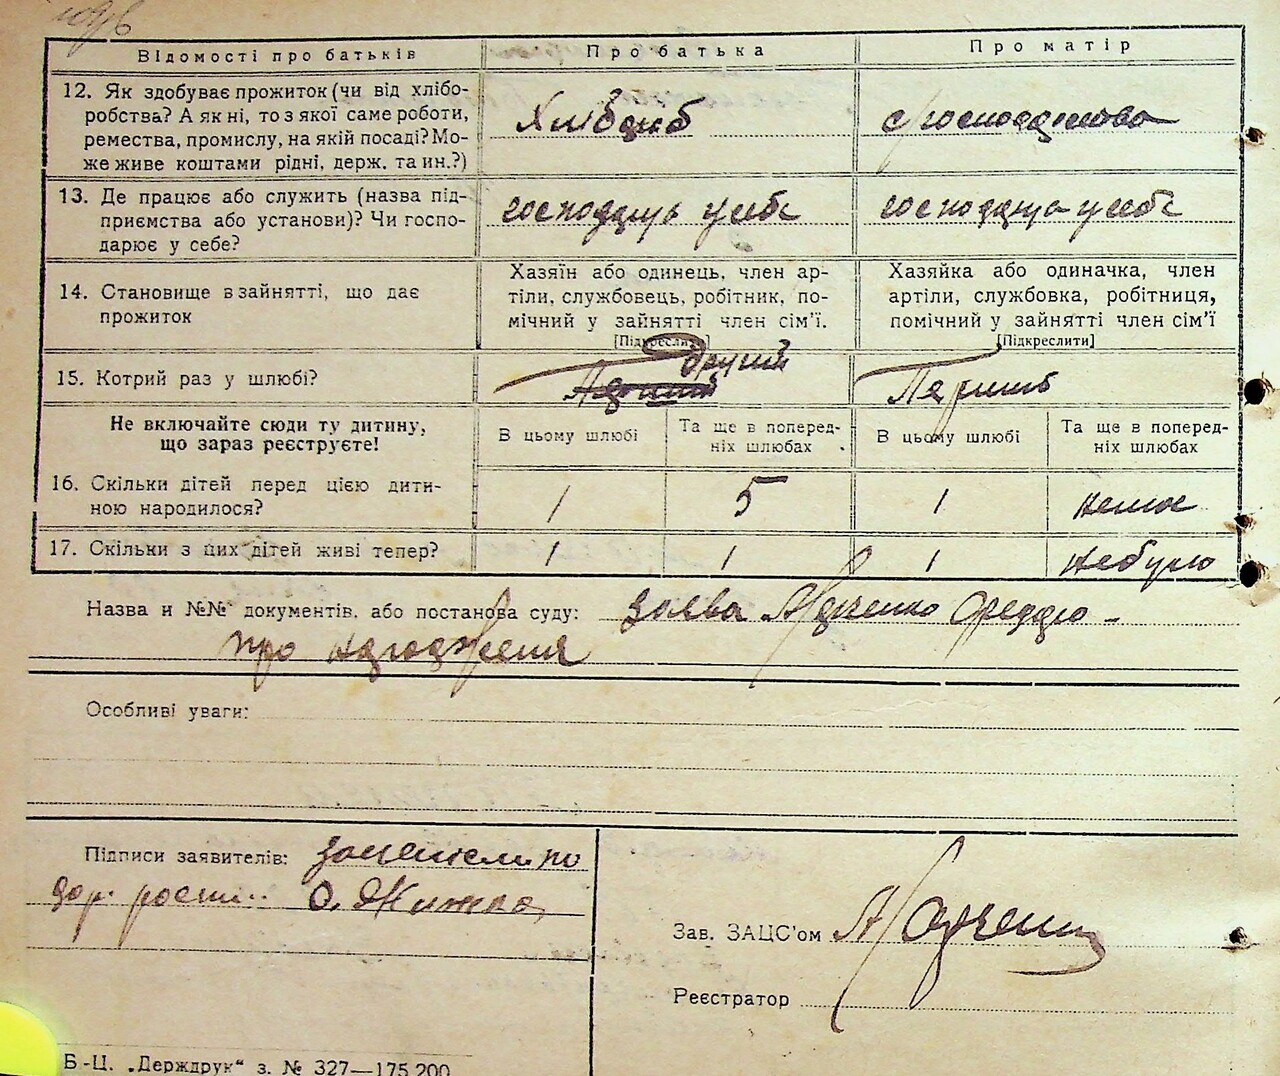 Відомості про батьків
Про батька
Про матір
12. Як здобуває прожиток (чи від хлібо-
робства? А як ні, то з якої саме роботи,
ремества, промислу, на якій посаді? Мо-
же живе коштами рідні, держ. та ин.?)
Хлібороб
13. Де працює або служить (назва під-
приємства або установи)? Чи госпо-
дарює у себе?
у себе
у себе
14. Становище в зайнятті, що дає
прожиток
Хазяїн або одинець, член ар-
тіли, службовець, робітник, по-
мічний у зайнятті член сім'ї.
[Підкреслити]
Хазяйка або одиначка, член
артіли, службовка, робітниця,
помічний у зайнятті член сім'ї
[Підкреслити]
15. Котрий раз у шлюбі?
другий
Не включайте сюди ту дитину,
що зараз реєструєте!
В цьому шлюбі
Та ще в поперед-
ніх шлюбах
В цьому шлюбі
Та ще в поперед-
ніх шлюбах
16. Скільки дітей перед цією дити-
ною народилося?
1
5
1
немає
17. Скільки з цих дітей живі тепер?
1
1
1
небуло
Назва и №№ документів, або постанова суду: заява
про
Особливі уваги:
Підписи заявителів:
Зав. ЗАЦС'ом
Реєстратор
Б-Ц. „Держдрук“ з. № 327—175.200